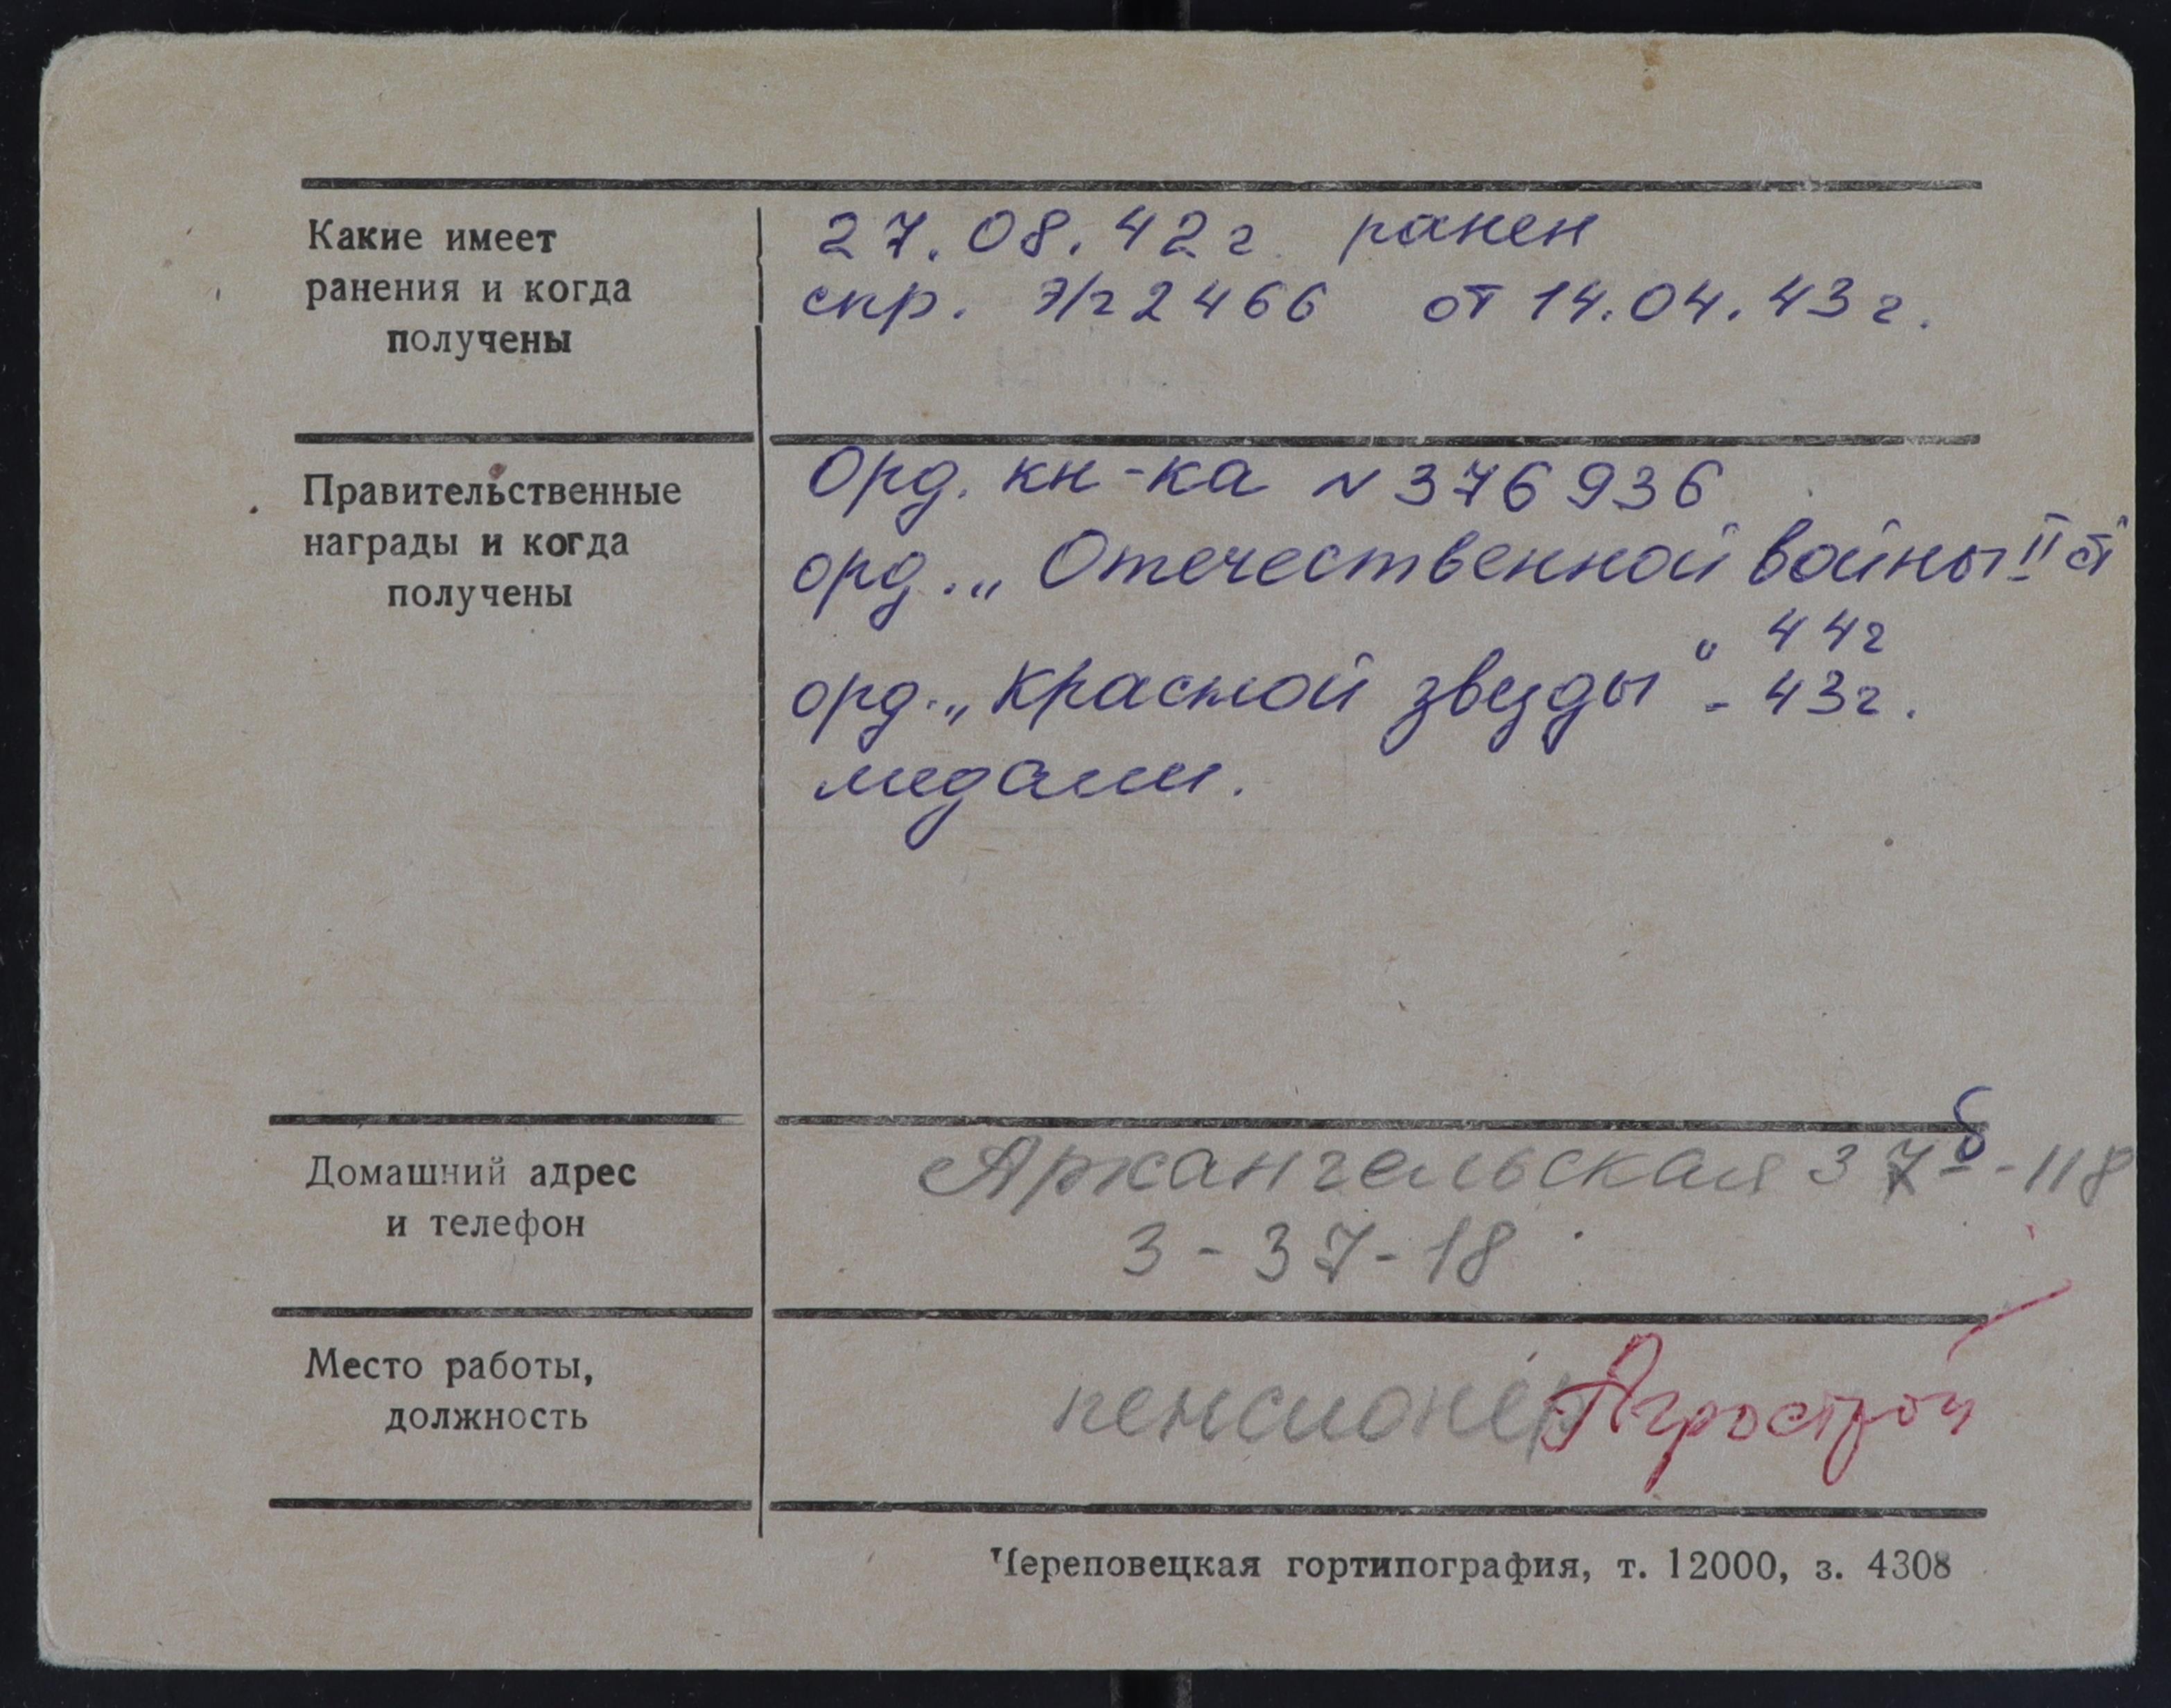 Какие имеет
ранения и когда
получены
27.08.42г. ранен
спр. э/г 2466 от 14.04.43г.
Правительственные
награды и когда
получены
Орд. кн-ка № 376936
орд. „Отечественной войны II ст
" 44г
орд. „Красной звезды" - 43г.
медали.
Домашний адрес
и телефон
Архангельская 37б-118
3-37-18
Место работы,
должность
пенсионер Агрострой
Череповецкая гортипография, т. 12000, з. 4308